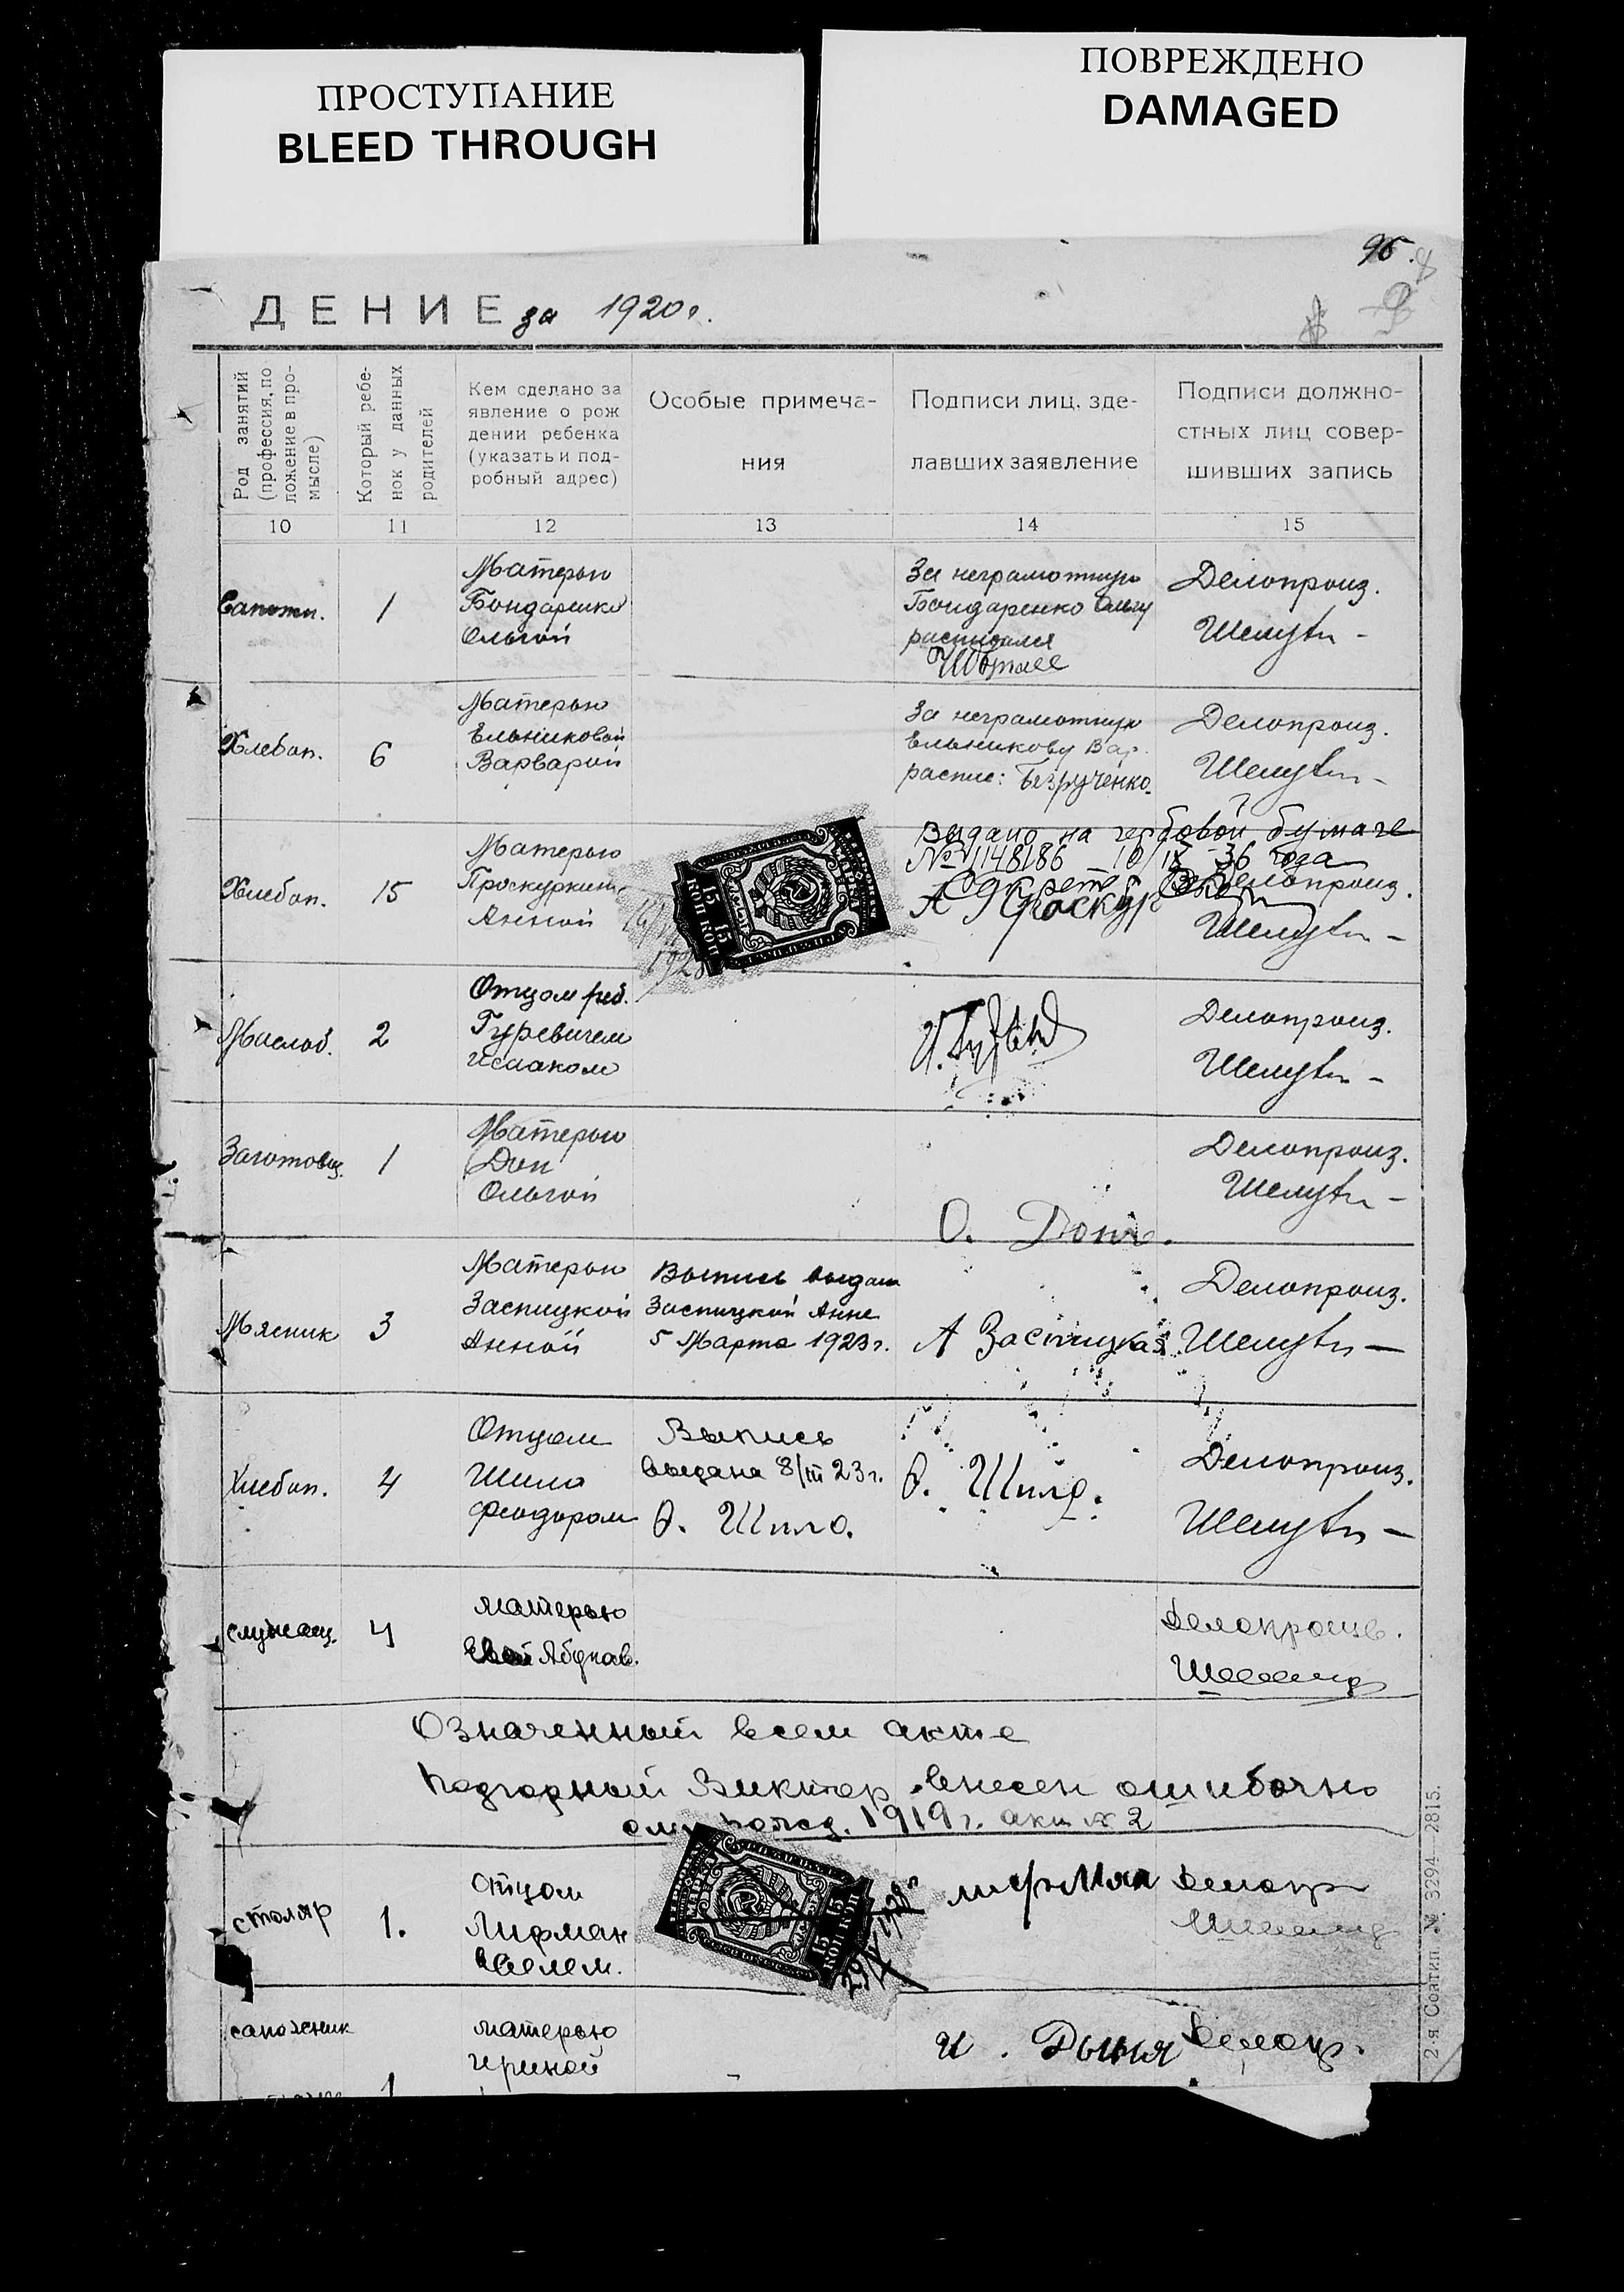 ПРОСТУПАНИЕ
BLEED THROUGH
ПОВРЕЖДЕНО
DAMAGED
95.
ДЕНИЕ за 1920г.
Род занятий
(профессия, по
ложение в про-
мысле)
Который ребе-
нок у данных
родителей
Кем сделано за
явление о рож
дении ребенка
(указать и под-
робный адрес)
Особые примеча-
ния
Подписи лиц, зде-
лавших заявление
Подписи должно-
стных лиц совер-
шивших запись
10 11 12 13 14 15
Сапожн. 1
Матерью
Бондаренко
Ольгой
За неграмотную
Бондаренко Ольгу
расписался
Делопроиз.
Хлебоп. 6
Матерью
Ельниковой
Варварой
За неграмотную
Ельникову Вар.
распис: Безрученко.
Делопроиз.
Хлебоп. 15
Матерью
Проскуркин
Анной
15 15
КОП КОП
Выдано на гербовой бумаге
№ 1148186 10/IX 36 года
Секрет
А Проскур
Делопроиз.
Маслоб. 2
Отцом реб.
Гуревичем
Исааком
Делопроиз.
Заготовщ. 1
Матерью
Доп
Ольгой
О.
Делопроиз.
Мясник 3
Матерью
Заспицкой
Анной
Выпись выдана
Заспицкой Анне
5 Марта 1923г.
А Заспицкая
Делопроиз.
Хлебоп. 4
Отцом
Шило
Феодором
Выпись
выдана 8/III 23г.
Ѳ. Шило.
Ѳ. Шило.
Делопроиз.
служащ. 4
матерью
Делопроизв.
Означенный в сем акте
Подгорный Виктор внесен ошибочно
1919г. акт № 2
столяр 1.
отцом
Лифман
Велем.
15 15
КОП КОП
лифман
Делопр
сапожник
1
матерью
Ириной
И.
Делопр.
2-я Соатип. № 3294—2815.